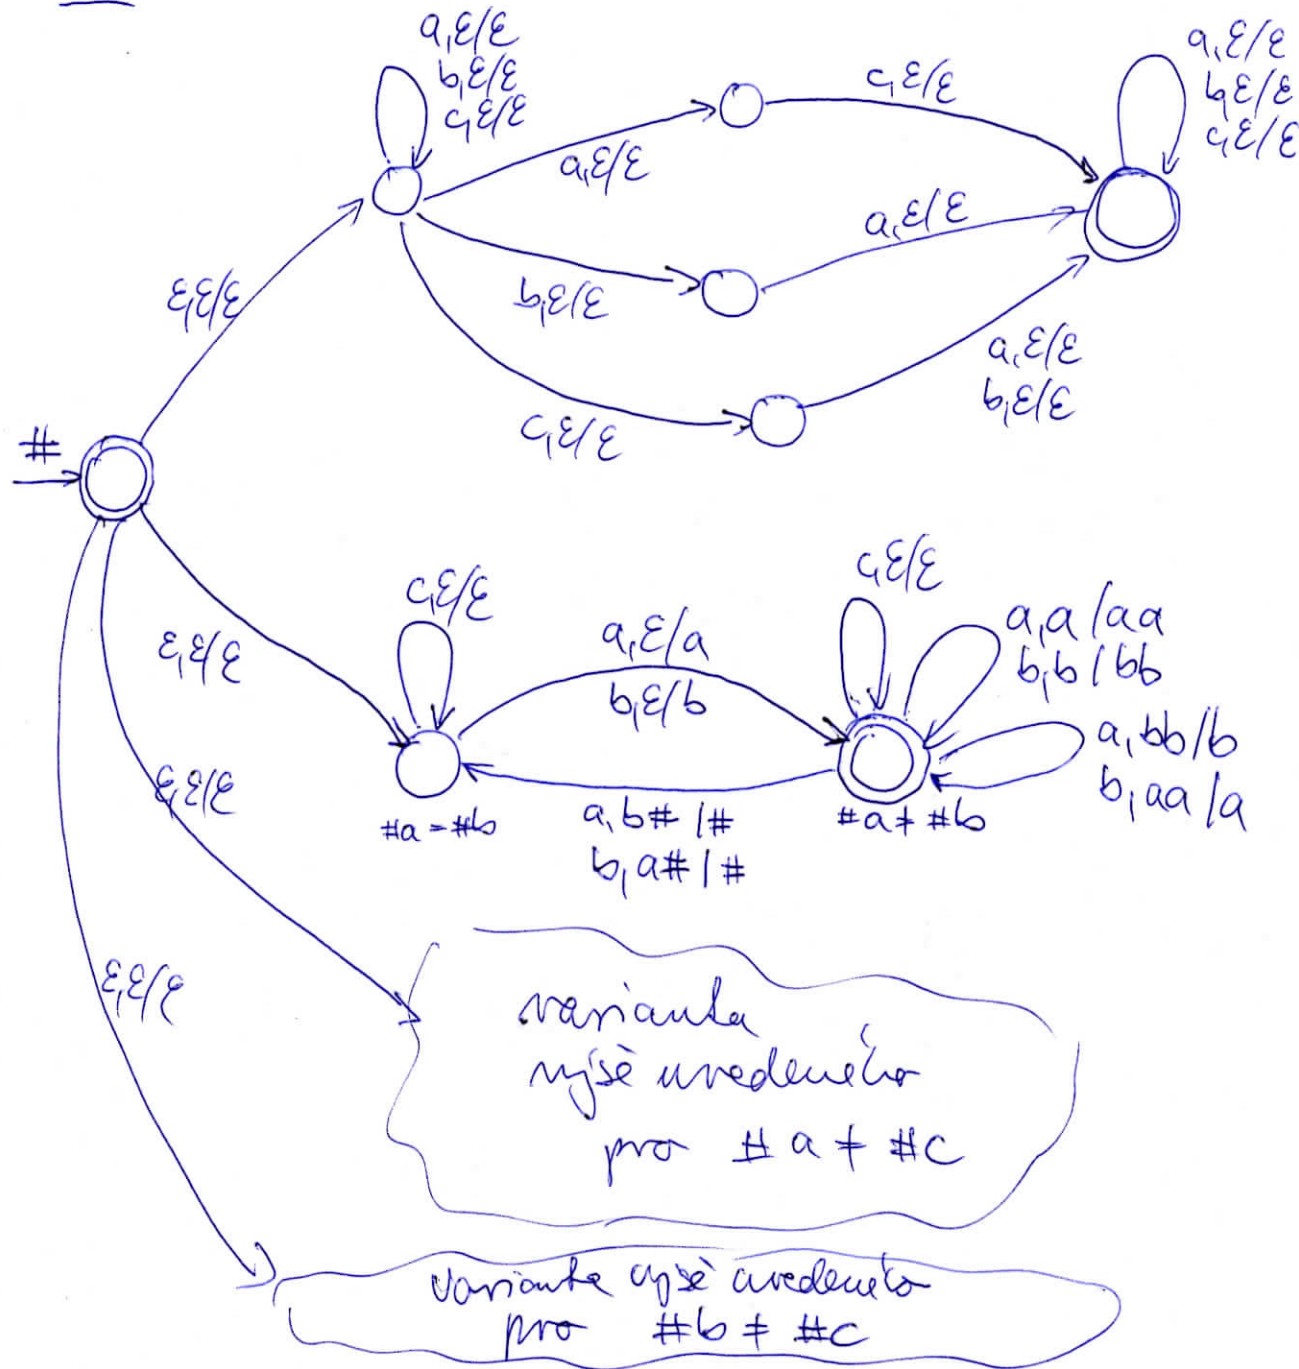 a,ε/ε
b,ε/ε
c,ε/ε
c,ε/ε
a,ε/ε
b,ε/ε
c,ε/ε
a,ε/ε
a,ε/ε
b,ε/ε
ε,ε/ε
a,ε/ε
b,ε/ε
c,ε/ε
#
c,ε/ε
c,ε/ε
a,ε/a
b,ε/b
a,a/aa
b,b/bb
ε,ε/ε
a,bb/b
b,aa/a
ε,ε/ε
#a=#b
a,b#/#
b,a#/#
#a≠#b
ε,ε/ε
varianta
výše uvedeného
pro #a ≠ #c
varianta výše uvedeného
pro #b ≠ #c